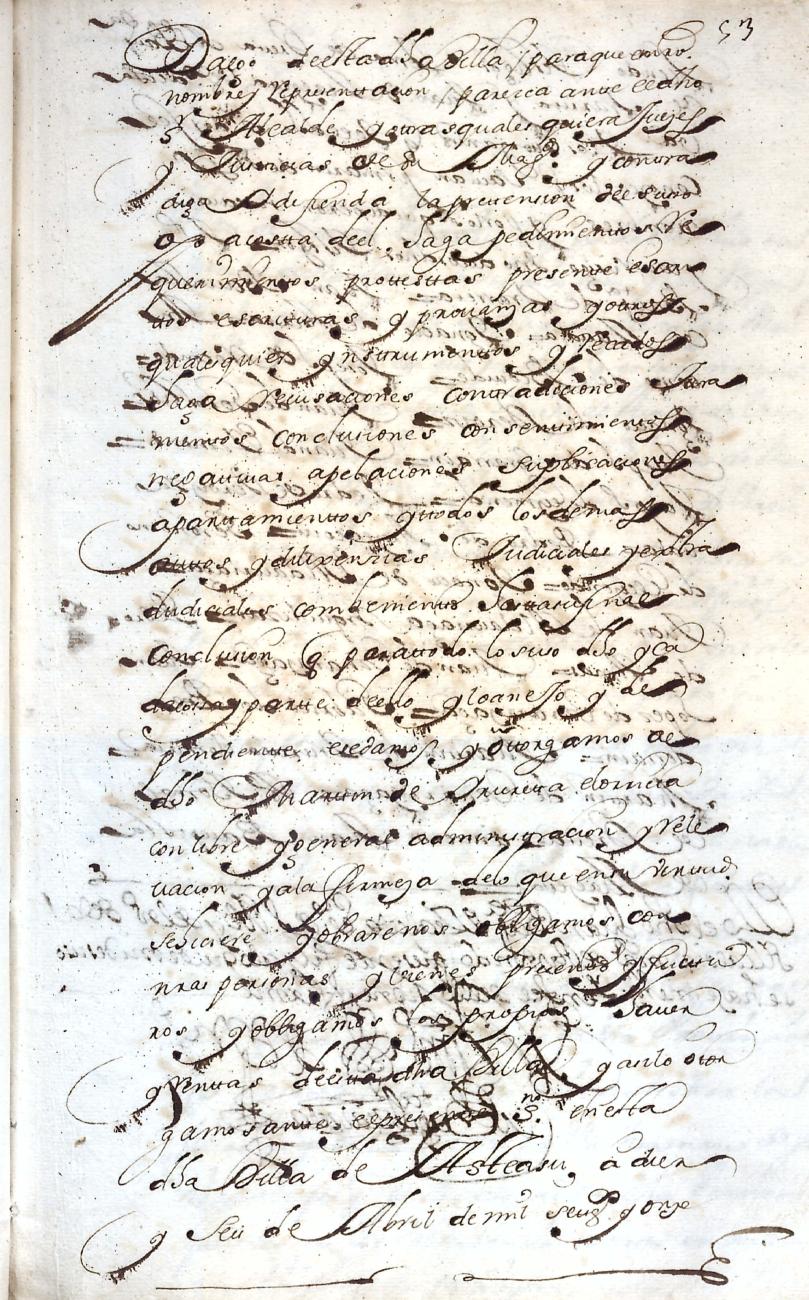 53
deesta dha Villa, paraque en nro
nombre y rrepresentacion, paresca ante el dho
Alcalde y otras quales quiera Jueçes
y Justicias de su Magd. y contra
diga defienda la pretension de suso
o a costa deel haga pedimientos Re
querimientos protestas presente escri
tos escrituras y provanças y otros
qualesquier ynstrumentos y recados
haga Recusaciones contradiciones Jura
mentos conclusiones consentimientos
apelaciones suplicaciones
apartamientos y todos los demas
autos y diligencias Judiciales y extra
Judiciales combenientes hasta
conclusion q para todo lo suso dho y ca
da cosa y parte deello y lo anejo y de
pendiente le damos y otorgamos a el
dho Martin de
con libre y general administracion y rele
vacion y a la firmeza de lo que en su virtud
se hiciere y obrare nos obligamos con
nras personas y vienes presentes y futu
ros y obligamos los propios haver
y Rentas de esta dha Villa y asi lo otor
gamos ante el presente en esta
dha Villa de Asteasu a diez
y seis de Abril de mil y onze